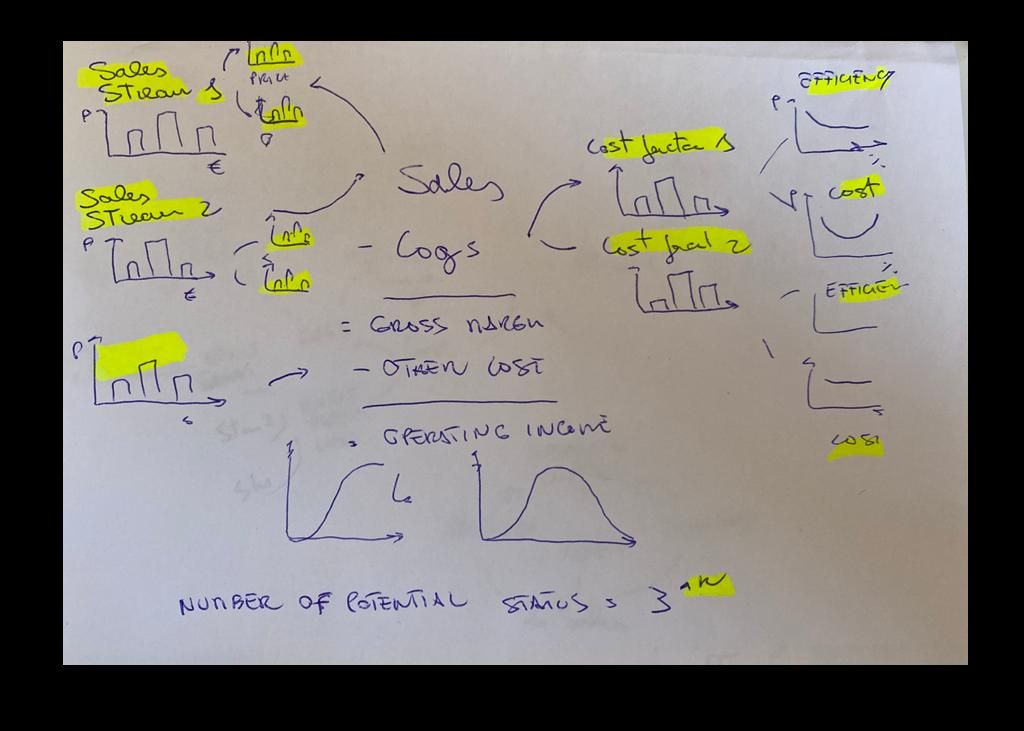 Sales
Stream 1
PRICE
P
€
Q
Sales
Stream 2
P
€
P
Sales
- Cogs
= GROSS MARGIN
- OTHER COST
= OPERATING INCOME
Cost factor 1
Cost fact 2
EFFICIENCY
P
%
COST
P
%
EFFICIEN
COST
NUMBER OF POTENTIAL STATUS = 3^N